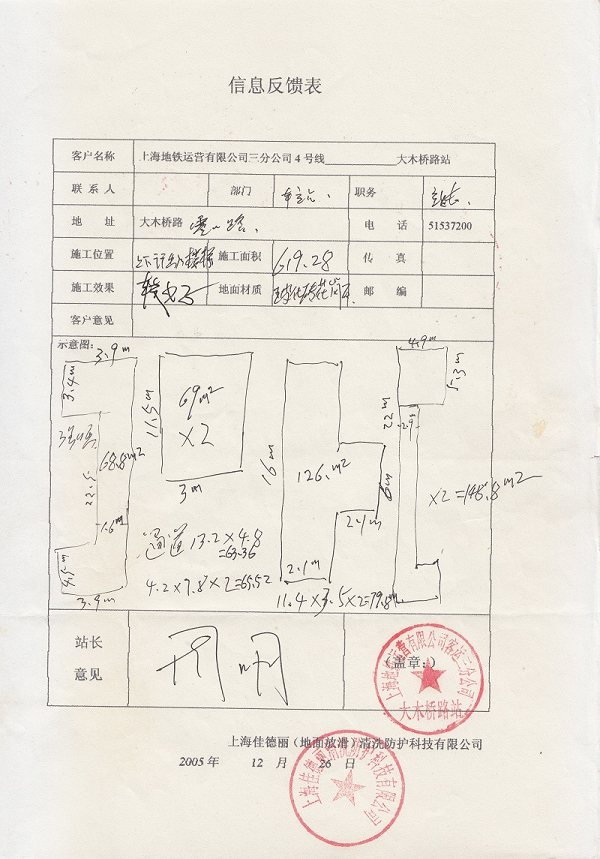 信息反馈表
客户名称 上海地铁运营有限公司三分公司4号线 大木桥路站
联系人 部门 职务 站长.
地 址 大木桥路 零山路. 电 话 51537200
施工位置 施工面积 619.28 传 真
施工效果 地面材质 邮 编
客户意见
示意图:
3.9m
3.4m
68.8m²
22.5
1.6m
4.5m
3.9m
11.5m
69m²
X2
3m
16m
126.m²
2.1m
6m
2.1m
4.9m
5.3m
22m
2.9
X2=148.8m²
通道 13.2X4.8
=63.36
4.2X7.8X2=65.52
11.4X3.5X2=79.8m
站长
意见
(盖章:)
上海地铁运营有限公司客运三分公司
大木桥路站
上海佳德丽(地面放滑)清洗防护科技有限公司
2005年 12 月 26 日
上海佳德丽清洗防护科技有限公司